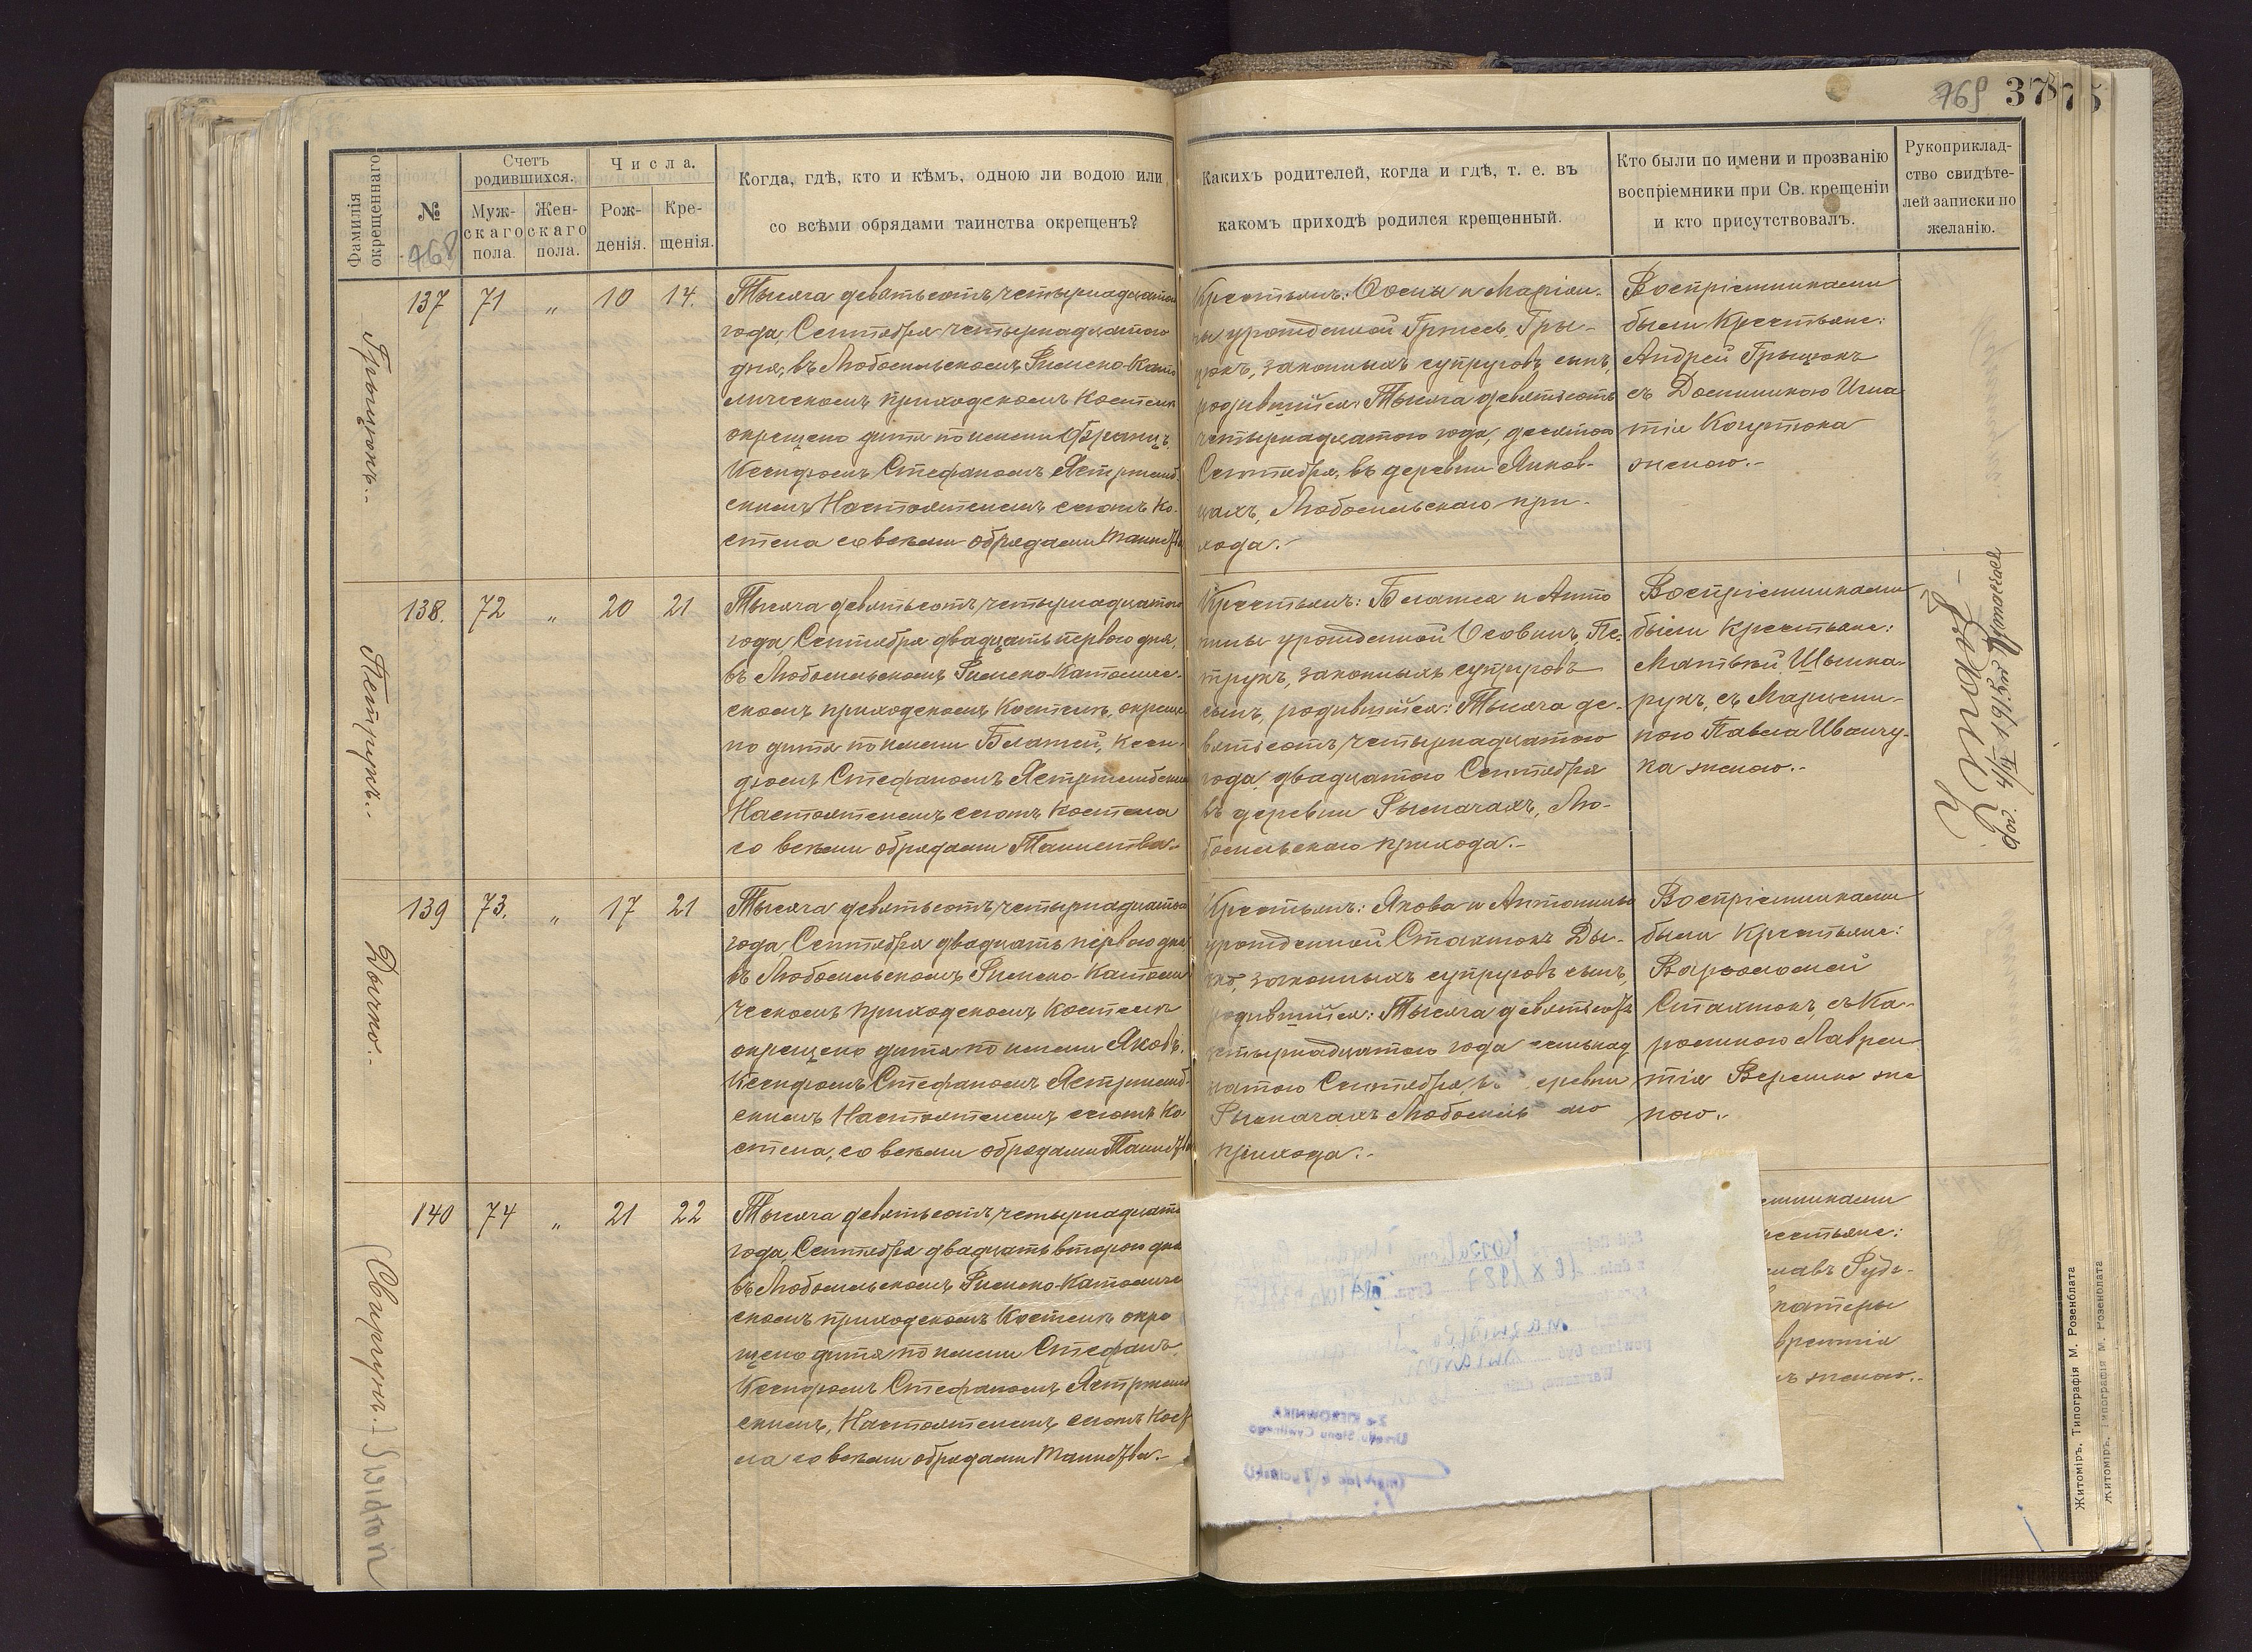 768
769 378 75
Фамилія окрещеннаго
№
Счетъ родившихся.
Муж-скаго пола.
Жен-скаго пола.
Числа.
Рож-денія.
Кре-щенія.
Когда, гдѣ, кто и кѣмъ, одною ли водою или
со всѣми обрядами таинства окрещенъ?
Какихъ родителей, когда и гдѣ, т. е. въ
какомъ приходѣ родился крещенный.
Кто были по имени и прозванію
воспріемники при Св. крещеніи
и кто присутствовалъ.
Рукоприклад-
ство свидѣте-
лей записки по
желанію.
Грыцюкъ.-
137 71 „ 10 14.
Тысяча девятьсотъ четырнадцатаго
года, Сентября четырнадцатаго
дня, въ Любомльскомъ Римско-Като
лическомъ приходскомъ Костелѣ
окрещено дитя по имени Францъ
Ксендзомъ Стефаномъ Ястржемб-
скимъ Настоятелемъ сегожъ Ко-
стела со всѣми обрядами Таинства
Крестьянъ: Осипа и Маріан-
ны урожденной Гржесь, Гры-
цюкъ, законныхъ супруговъ сынъ,
родившійся: Тысяча девятьсотъ
четырнадцатаго года, десятаго
Сентября, въ деревни Янков-
цахъ, Любомльскаго при-
хода.-
Воспріемниками
были Крестьяне:
Андрей Грыцюкъ
съ Доминикою Игна
тія Коцюока
женою.-
Петрукъ.-
138. 72 „ 20 21
Тысяча девятьсотъ четырнадцатаго
года, Сентября двадцать перваго дня,
въ Любомльскомъ Римско-Католиче-
скомъ приходскомъ Костелѣ, окреще
но дитя по имени Блажей, Ксен-
дзомъ Стефаномъ Ястржембскимъ
Настоятелемъ сегожъ Костела
со всѣми обрядами Таинства.-
Крестьянъ: Блажея и Анто
нины урожденной Осовикъ, Пе-
трукъ, законныхъ супруговъ
сынъ, родившійся: Тысяча де-
вятьсотъ четырнадцатаго
года, двадцатаго Сентября
въ деревни Рымачахъ, Лю-
бомльскаго прихода.-
Воспріемниками
были Крестьяне:
Матвѣй Шынка-
рукъ, съ Марцели-
ною Павла Иванчу-
ка женою.-
Дычко.-
139 73. „ 17 21
Тысяча девятьсотъ четырнадцатаго
года, Сентября двадцать перваго дня
въ Любомльскомъ Римско-Католи
ческомъ приходскомъ Костелѣ
окрещено дитя по имени Яковъ,
Ксендзомъ Стефаномъ Ястржемб-
скимъ Настоятелемъ сегожъ Ко-
стела, со всѣми обрядами Таинства
Крестьянъ: Якова и Антонины
урожденной Стахнюкъ Ды-
чко, законныхъ супруговъ сынъ,
родившійся: Тысяча девятьсотъ
четырнадцатаго года семнад
цатаго Сентября, въ деревни
Рымачахъ Любомль го
прихода.-
Воспріемниками
были Крестьяне:
Варфоломей
Стахнюкъ, съ Ка-
ролиною Лаврен
тія Верешко же
ною.-
(Свиргунъ.)
140 74 „ 21 22
Тысяча девятьсотъ четырнадцата
года, Сентября двадцать втораго дня
въ Любомльскомъ Римско-Католиче
скомъ приходскомъ Костелѣ окре
щено дитя по имени Стефанъ,
Ксендзомъ Стефаномъ Ястржемб
скимъ, Настоятелемъ сегожъ Косте
ла со всѣми обрядами Таинства.-
емниками
рестьяне:
лавъ Рудь-
катеры
врентія
женою.-
Житоміръ, Типографія М. Розенблата
Житоміръ, Типографія М. Розенблата